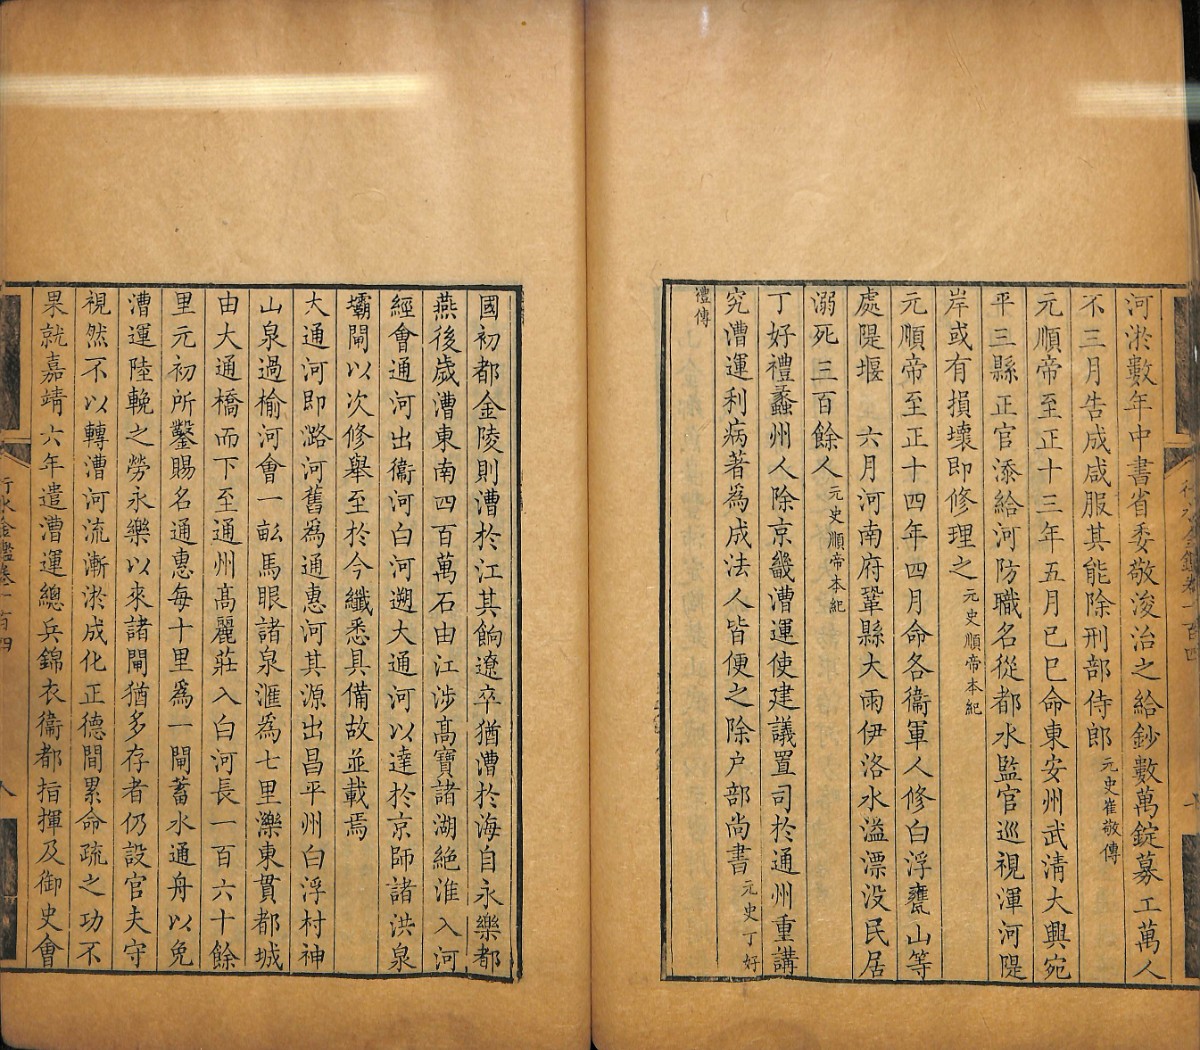 河淤數年中書省委敬浚治之給鈔數萬錠募工萬人
不三月告成咸服其能除刑部侍郎元史崔敬傳
元順帝至正十三年五月己巳命東安州武清大興宛
平三縣正官添給河防職名從都水監官巡視渾河隄
岸或有損壞即修理之元史順帝本紀
元順帝至正十四年四月命各衞軍人修白浮甕山等
處隄堰 六月河南府鞏縣大雨伊洛水溢漂沒民居
溺死三百餘人元史順帝本紀
丁好禮蠡州人除京畿漕運使建議置司於通州重講
究漕運利病著為成法人皆便之除户部尚書元史丁好
禮傳
國初都金陵則漕於江其餉遼卒猶漕於海自永樂都
燕後歲漕東南四百萬石由江涉髙寶諸湖絶淮入河
經會通河出衞河白河遡大通河以達於京師諸洪泉
壩閘以次修舉至於今纖悉具備故並載焉
大通河即潞河舊為通惠河其源出昌平州白浮村神
山泉過榆河會一畝馬眼諸泉滙為七里濼東貫都城
由大通橋而下至通州髙麗莊入白河長一百六十餘
里元初所鑿賜名通惠每十里為一閘蓄水通舟以免
漕運陸輓之勞永樂以來諸閘猶多存者仍設官夫守
視然不以轉漕河流漸淤成化正德間累命疏之功不
果就嘉靖六年遣漕運總兵錦衣衞都指揮及御史會
行水金鑑卷一百四
八